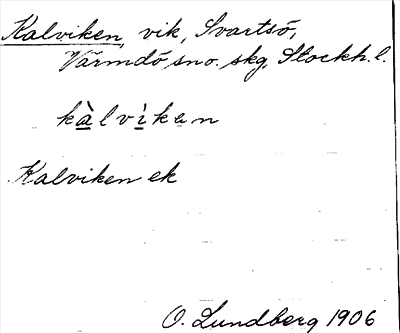 Kalviken, vik, Svartsö,
Värmdö sno. skg, Stockh. l.
kàlvìken
Kalviken ek
O. Lundberg 1906